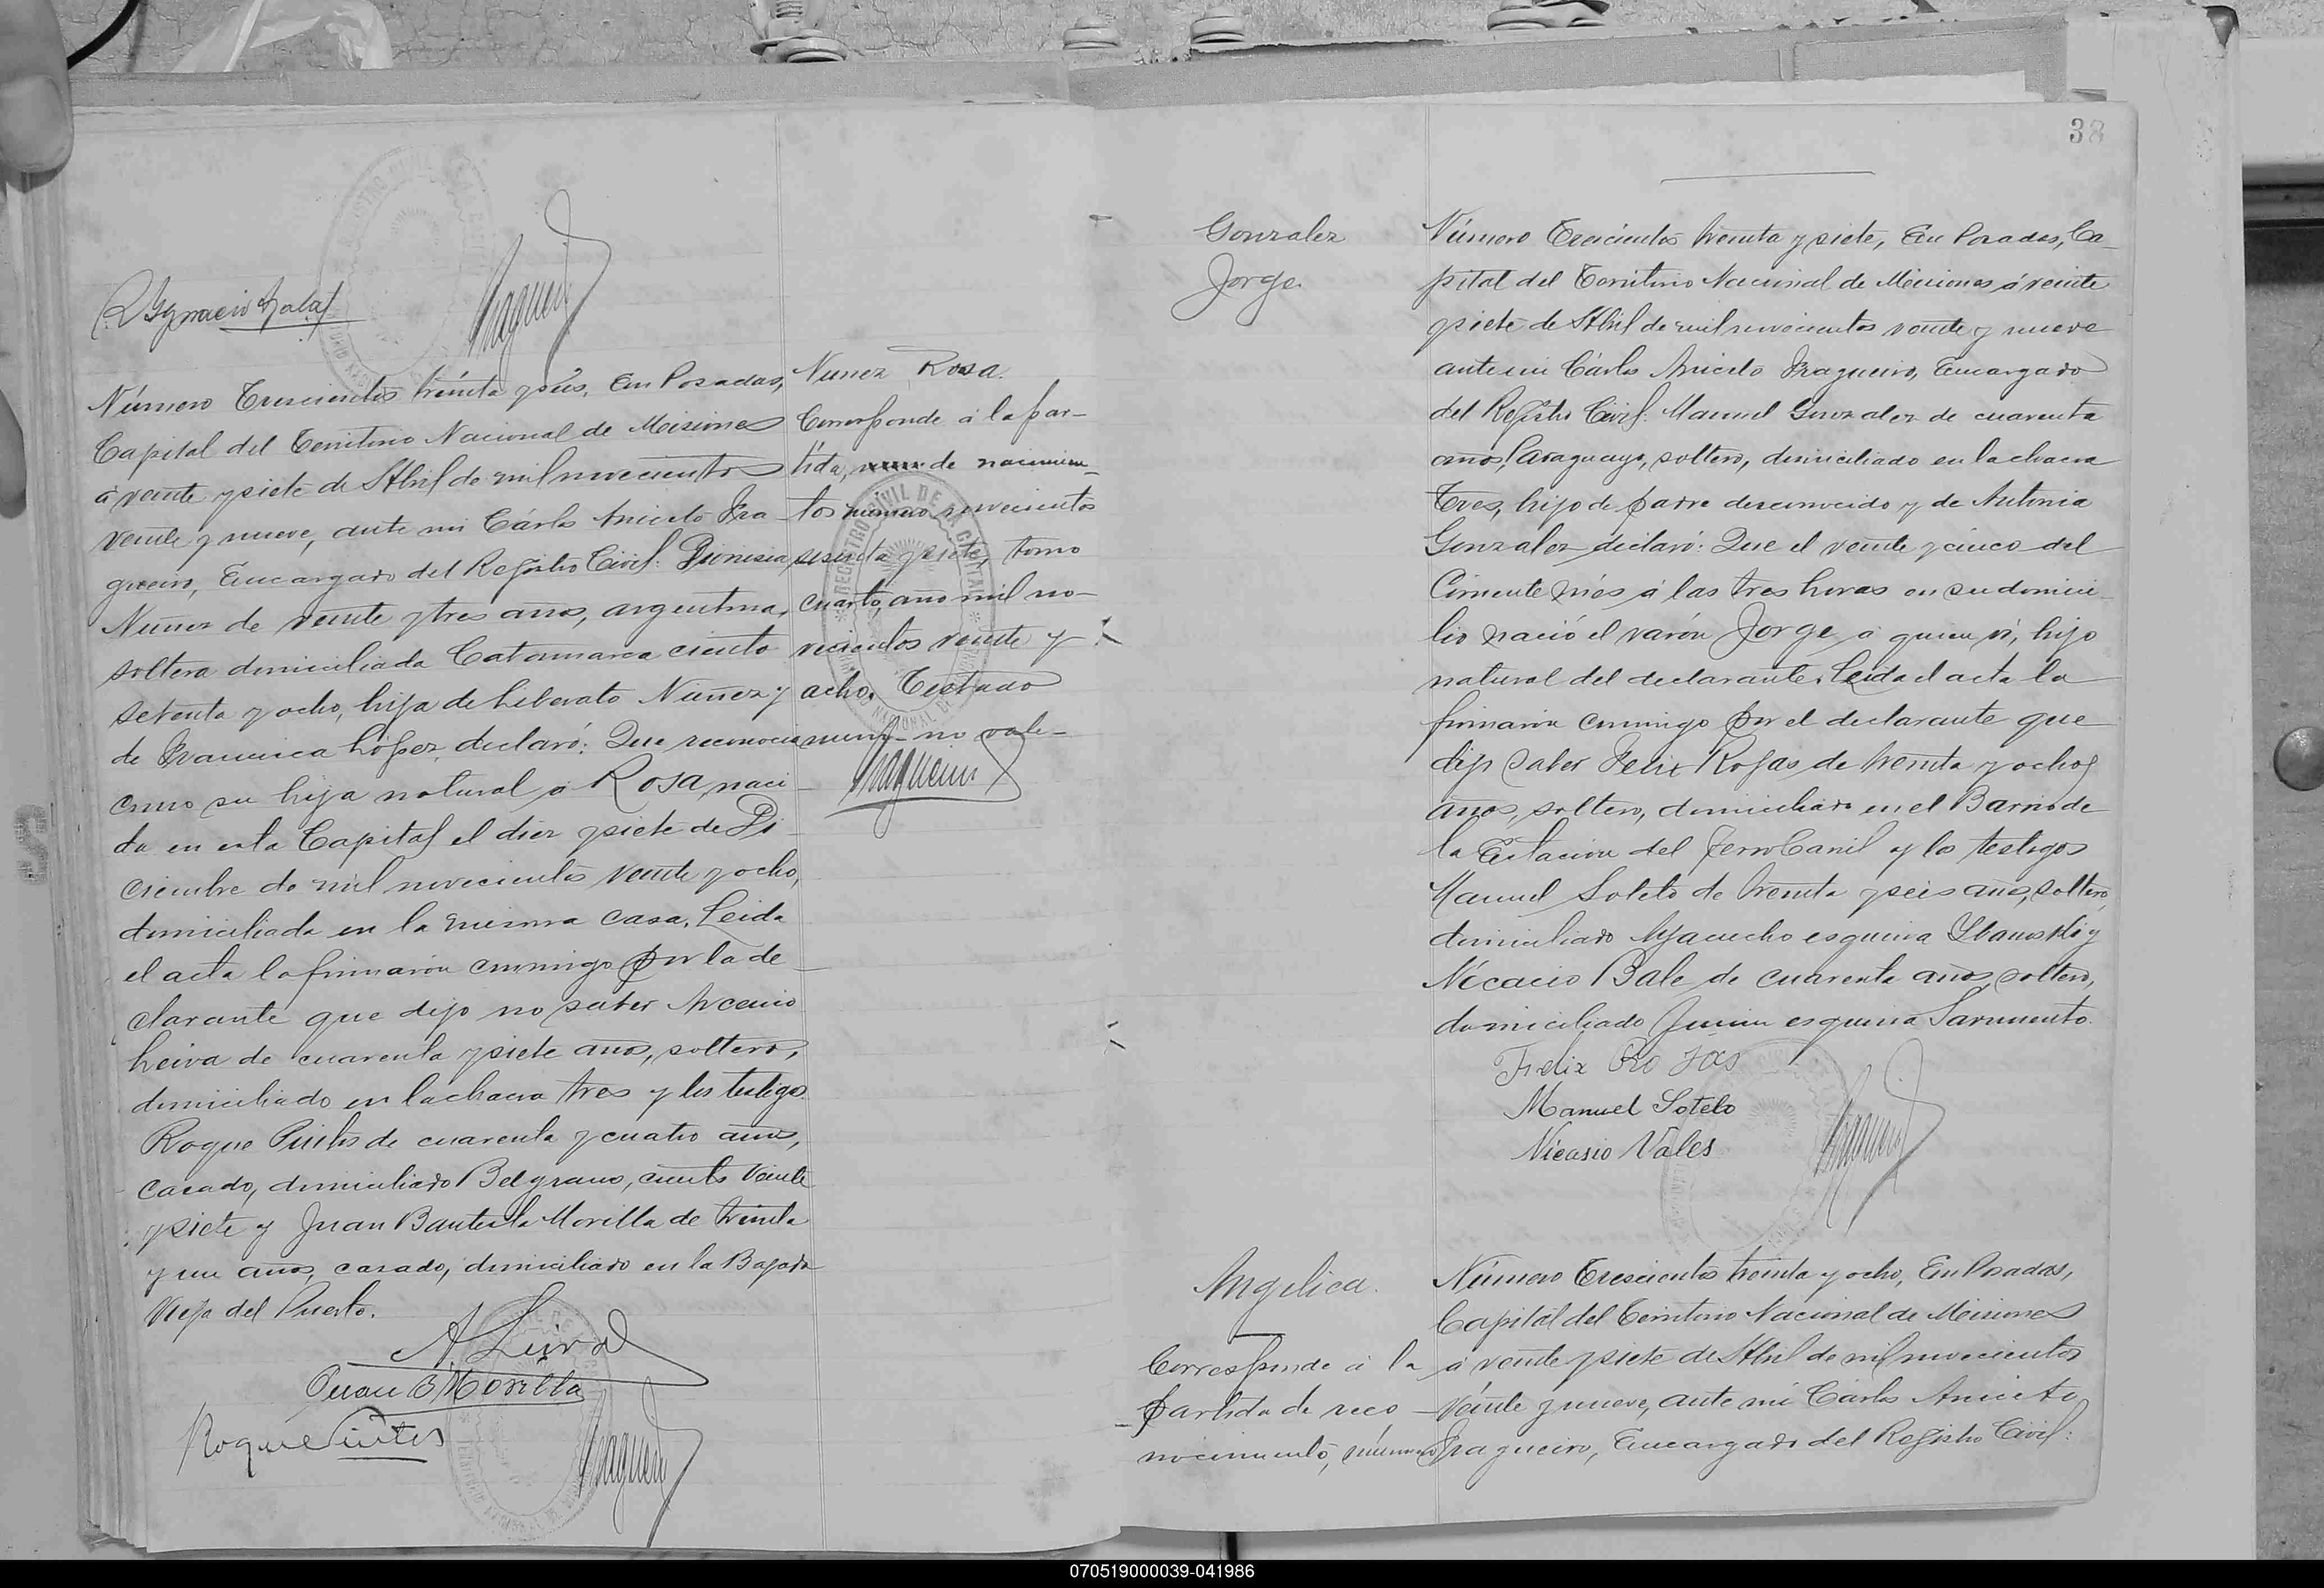 Ygnacio Zala
Número Trescientos treinta y seis, En Posadas,
Capital del Territorio Nacional de Misiones
á veinte y siete de Abril de mil novecientos
veinte y nueve, ante mi Cárlos Aniceto Fra-
gueiro, Encargado del Registro Civil: Dionisia
Nuñez de veinte y tres años, argentina,
soltera domiciliada Catamarca ciento
setenta y ocho, hija de Liberato Nuñez y
de Francisca López, declaró: Que reconocia
como su hija natural á Rosa, naci-
da en esta Capital el diez y siete de Di-
ciembre de mil novecientos veinte y ocho,
domiciliada en la misma casa. Leida
el acta la firmaron conmigo por la de-
clarante que dijo no saber Arcenio
Leiva de cuarenta y siete años, soltero,
domiciliado en la chacra tres y los testigos
Roque Puites de cuarenta y cuatro años,
casado, domiciliado Belgrano, ciento veinte
y siete y Juan Bautista Morilla de treinta
y un años, casado, domiciliado en la Bajada
Vieja del Puerto.
A. Leiva
Juan B Morilla
Roque
Nunez Rosa.
Corresponde á la par-
tida, de nacimien-
tos número novecientos
sesenta y siete, tomo
cuarto, año mil no-
vecientos veinte y
ocho. Testado
no vale-
REGISTRO CIVIL DE LA CAPITAL
38
Gonzalez
Jorge.
Número Trescientos treinta y siete, En Posadas, Ca-
pital del Territorio Nacional de Misiones á veinte
y siete de Abril de mil novecientos veinte y nueve
ante mi Cárlos Aniceto Fragueiro, Encargado
del Registro Civil: Manuel Gonzalez de cuarenta
años, Paraguayo, soltero, domiciliado en la chacra
Tres, hijo de padre desconocido y de Antonia
Gonzalez declaró: Que el veinte y cinco del
Corriente mes á las tres horas en su domici-
lio nació el varón Jorge á quien ví, hijo
natural del declarante. Leida el acta la
firmaron conmigo por el declarante que
dijo saber Felix Rojas de treinta y ocho
años, soltero, domiciliado en el Barrio de
la Estacion del FerroCarril y los testigos
Manuel Sotelo de treinta y seis años, soltero,
domiciliado Ayacucho esquina y
Nicacio Bale de cuarenta años, soltero,
domiciliado Junin esquina Sarmiento.
Felix Ro jas
Manuel Sotelo
Nicasio Vales
Angelica.
Corresponde á la
partida de reco-
nocimiento, número
Número Trescientos treinta y ocho, En Posadas,
Capital del Territorio Nacional de Misiones
á veinte y siete de Abril de mil novecientos
veinte y nueve, ante mi Cárlos Aniceto
Fragueiro, Encargado del Registro Civil:
070519000039-041986